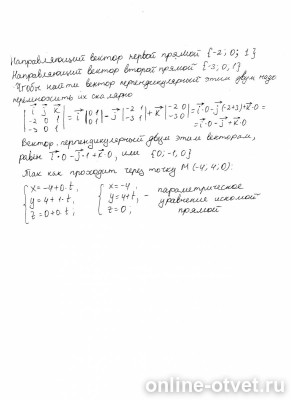 Направляющий вектор первой прямой {-2; 0; 1}
Направляющий вектор второй прямой {-3; 0, 1}
Чтобы найти вектор перпендикулярный этим двум надо
перемножить их скалярно
| i j k |
| -2 0 1 |
| -3 0 1 | = i |0 1; 0 1| - j |-2 1; -3 1| + k |-2 0; -3 0| = i·0 - j(-2+3) + k·0 =
= i·0 - j + k·0
Вектор, перпендикулярный двум этим векторам,
равен i·0 - j·1 + k·0, или {0; -1; 0}
Так как проходит через точку M(-4; 4; 0):
{ x = -4 + 0·t, { x = -4, параметрическое
{ y = 4 + 1·t, { y = 4 + t, - уравнение искомой
{ z = 0 + 0·t, { z = 0; прямой
online-otvet.ru